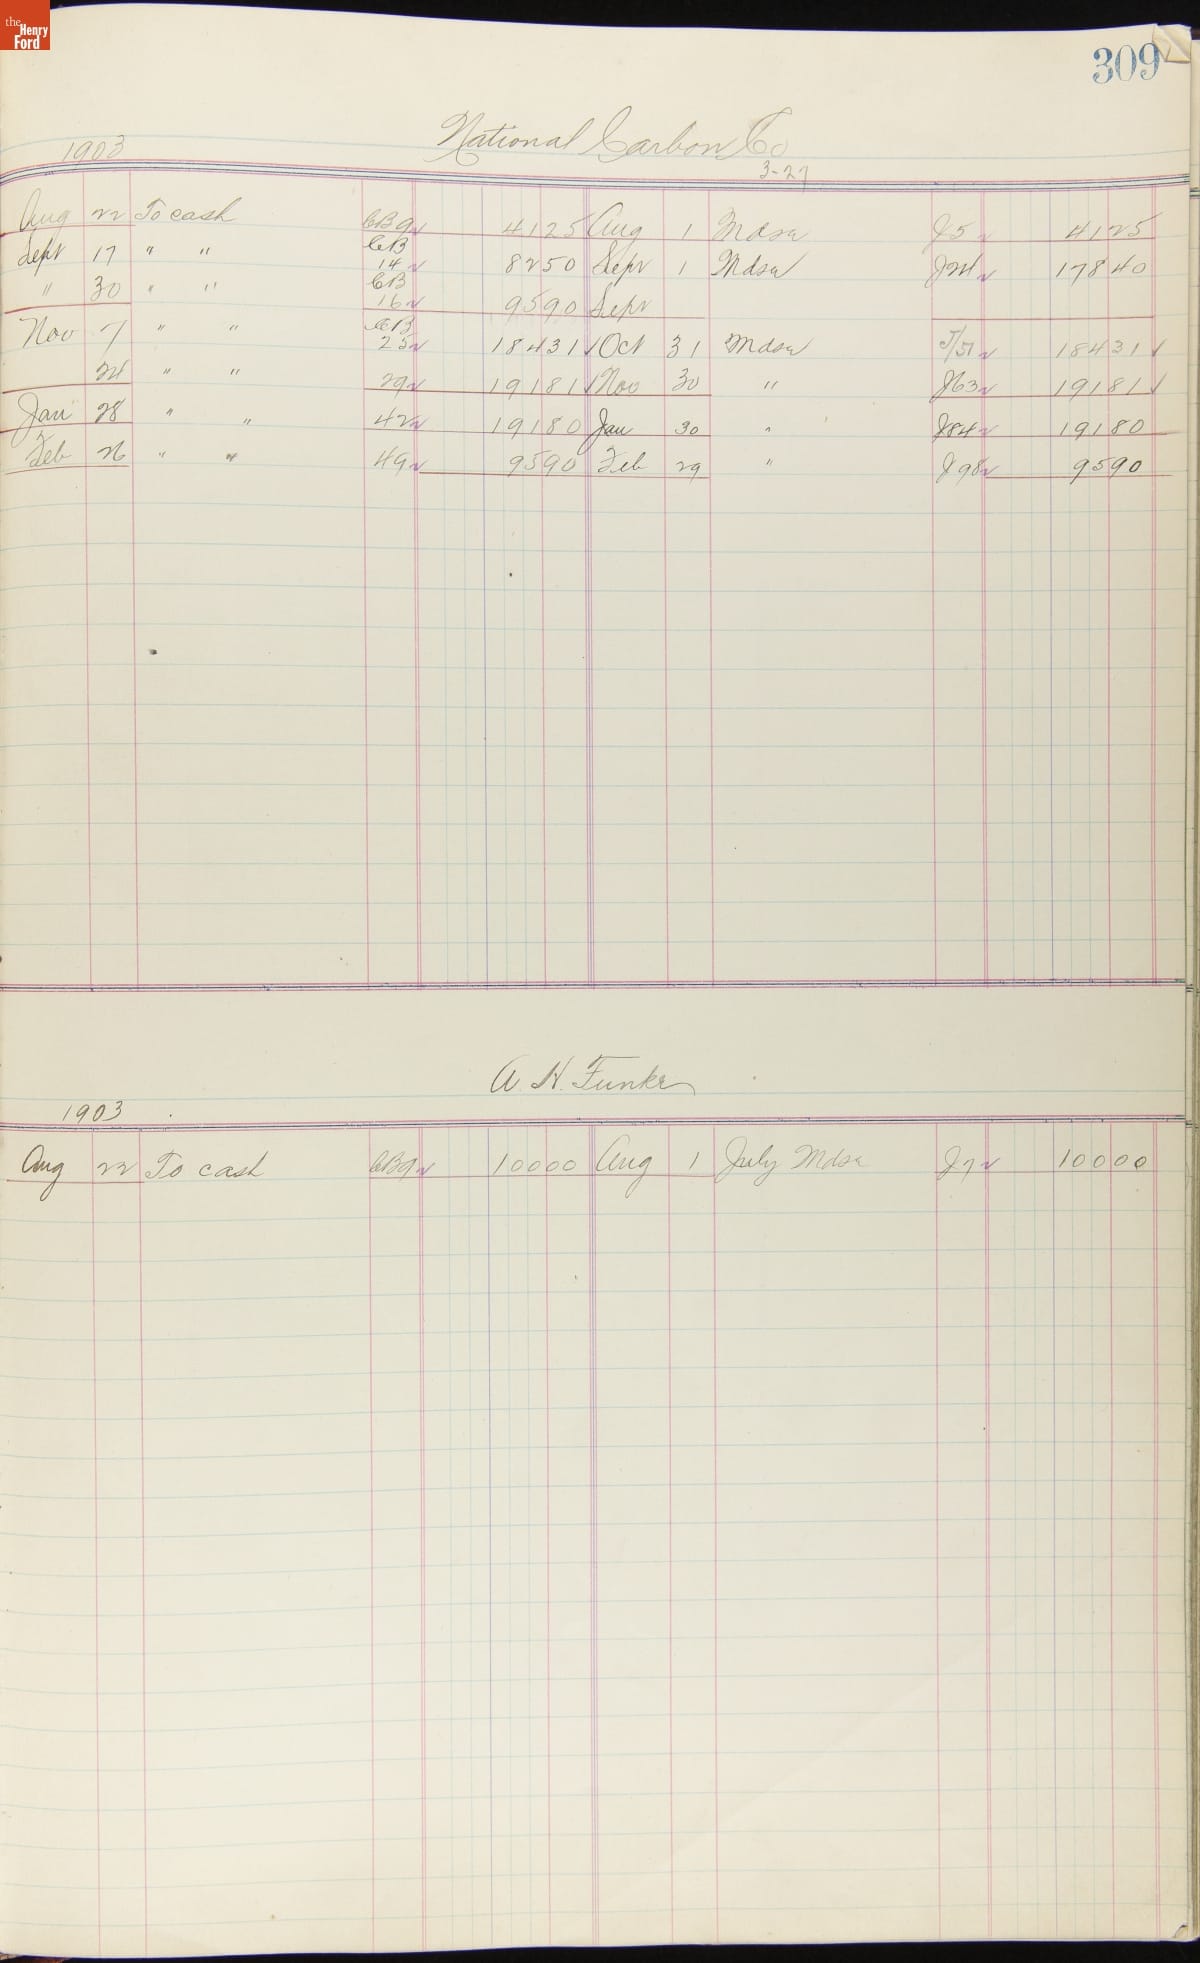 the
Henry
Ford
309
National Carbon Co
1903
3-27
Aug 22 To cash CB 9 4125 Aug 1 Mdse J5 4125
Sept 17 " " CB 14 8250 Sept 1 Mdse J24 17840
" 30 " " CB 16 9590 Sept
Nov 7 " " CB 25 18431 ✓ Oct 31 Mdse J/51 18431 ✓
24 " " 29 19181 ✓ Nov 30 " J63 19181 ✓
Jan 28 " " 42 19180 Jan 30 " J84 19180
Feb 26 " " 49 9590 Feb 29 " J98 9590
A. H. Funke
1903
Aug 22 To cash CB9 10000 Aug 1 July Mdse J7 10000